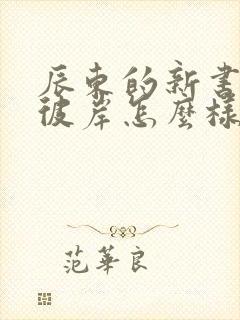 辰东的新书
彼岸怎麼樣
范華良